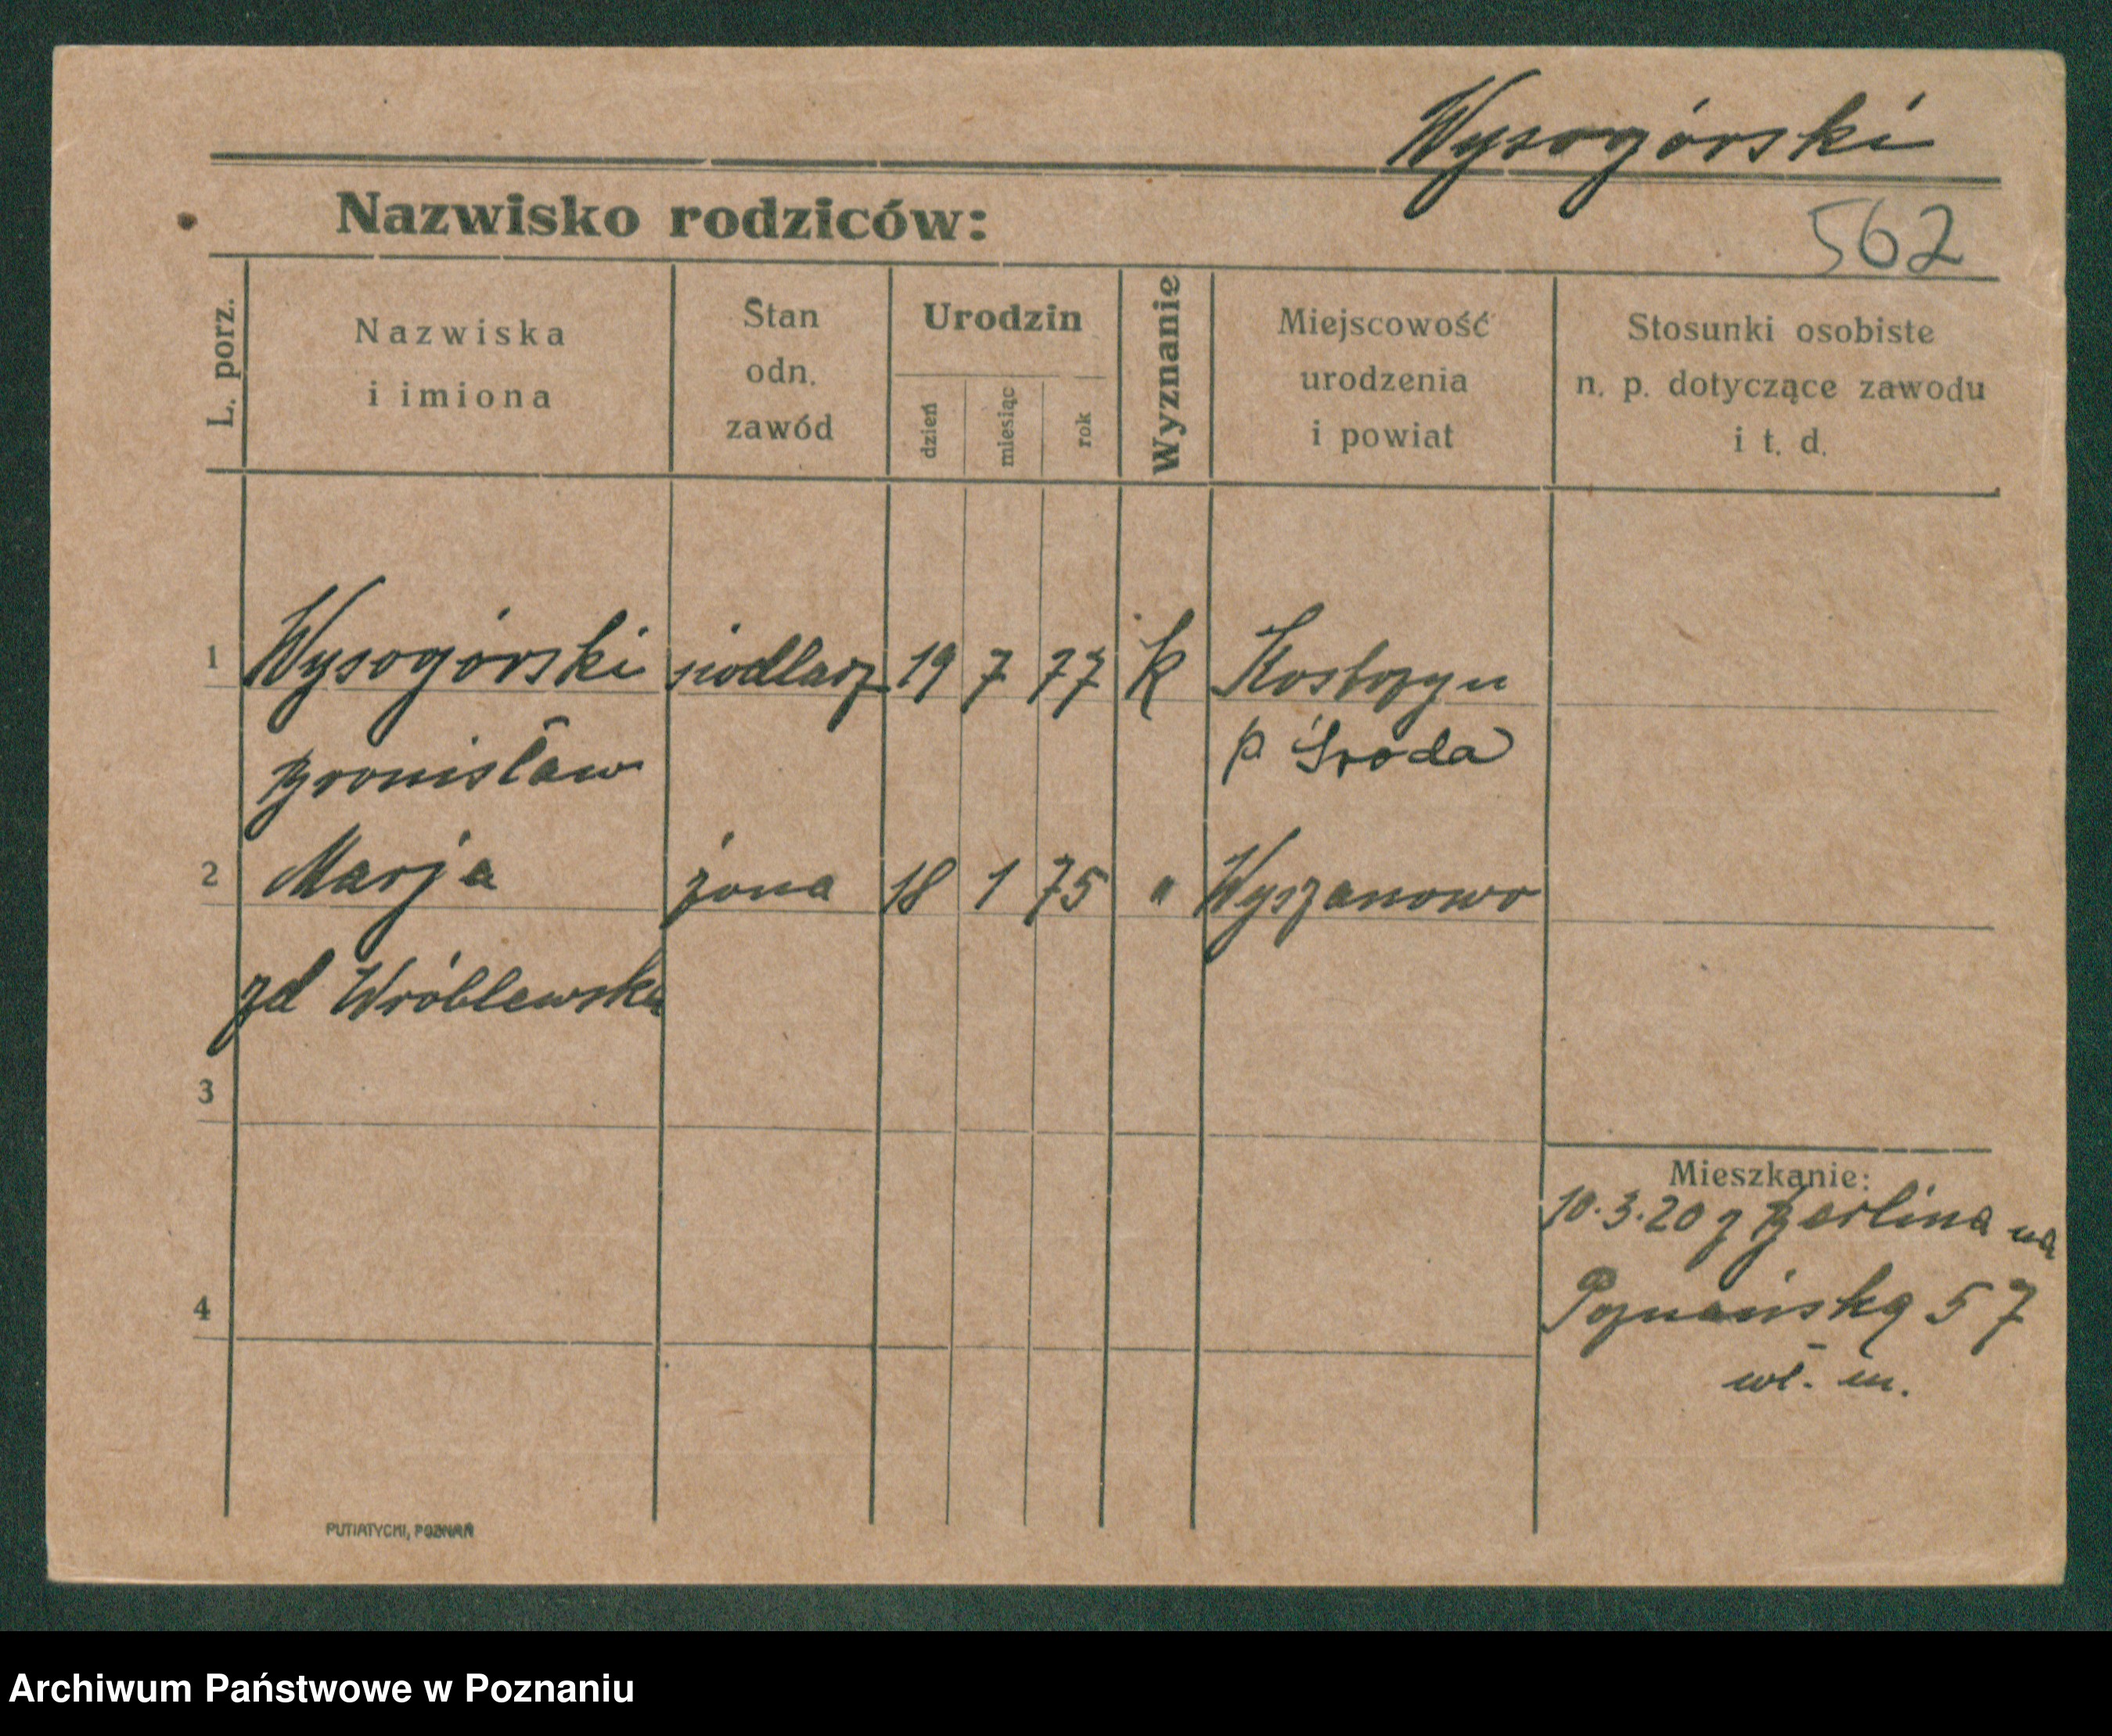 Wysogórski
Nazwisko rodziców:
562
L. porz.
Nazwiska
i imiona
Stan
odn.
zawód
Urodzin
dzień
miesiąc
rok
Wyznanie
Miejscowość
urodzenia
i powiat
Stosunki osobiste
n. p. dotyczące zawodu
i t. d.
1 Wysogórski siodlarz 19 7 77 k Kostrzyn
Bronisław p Środa
2 Marja żona 18 1 75 " Wyszanowo
zd Wróblewska
3
Mieszkanie:
10.3.20 z Berlina na
4
Poznańską 57
wł. m.
PUTIATYCKI, POZNAŃ
Archiwum Państwowe w Poznaniu